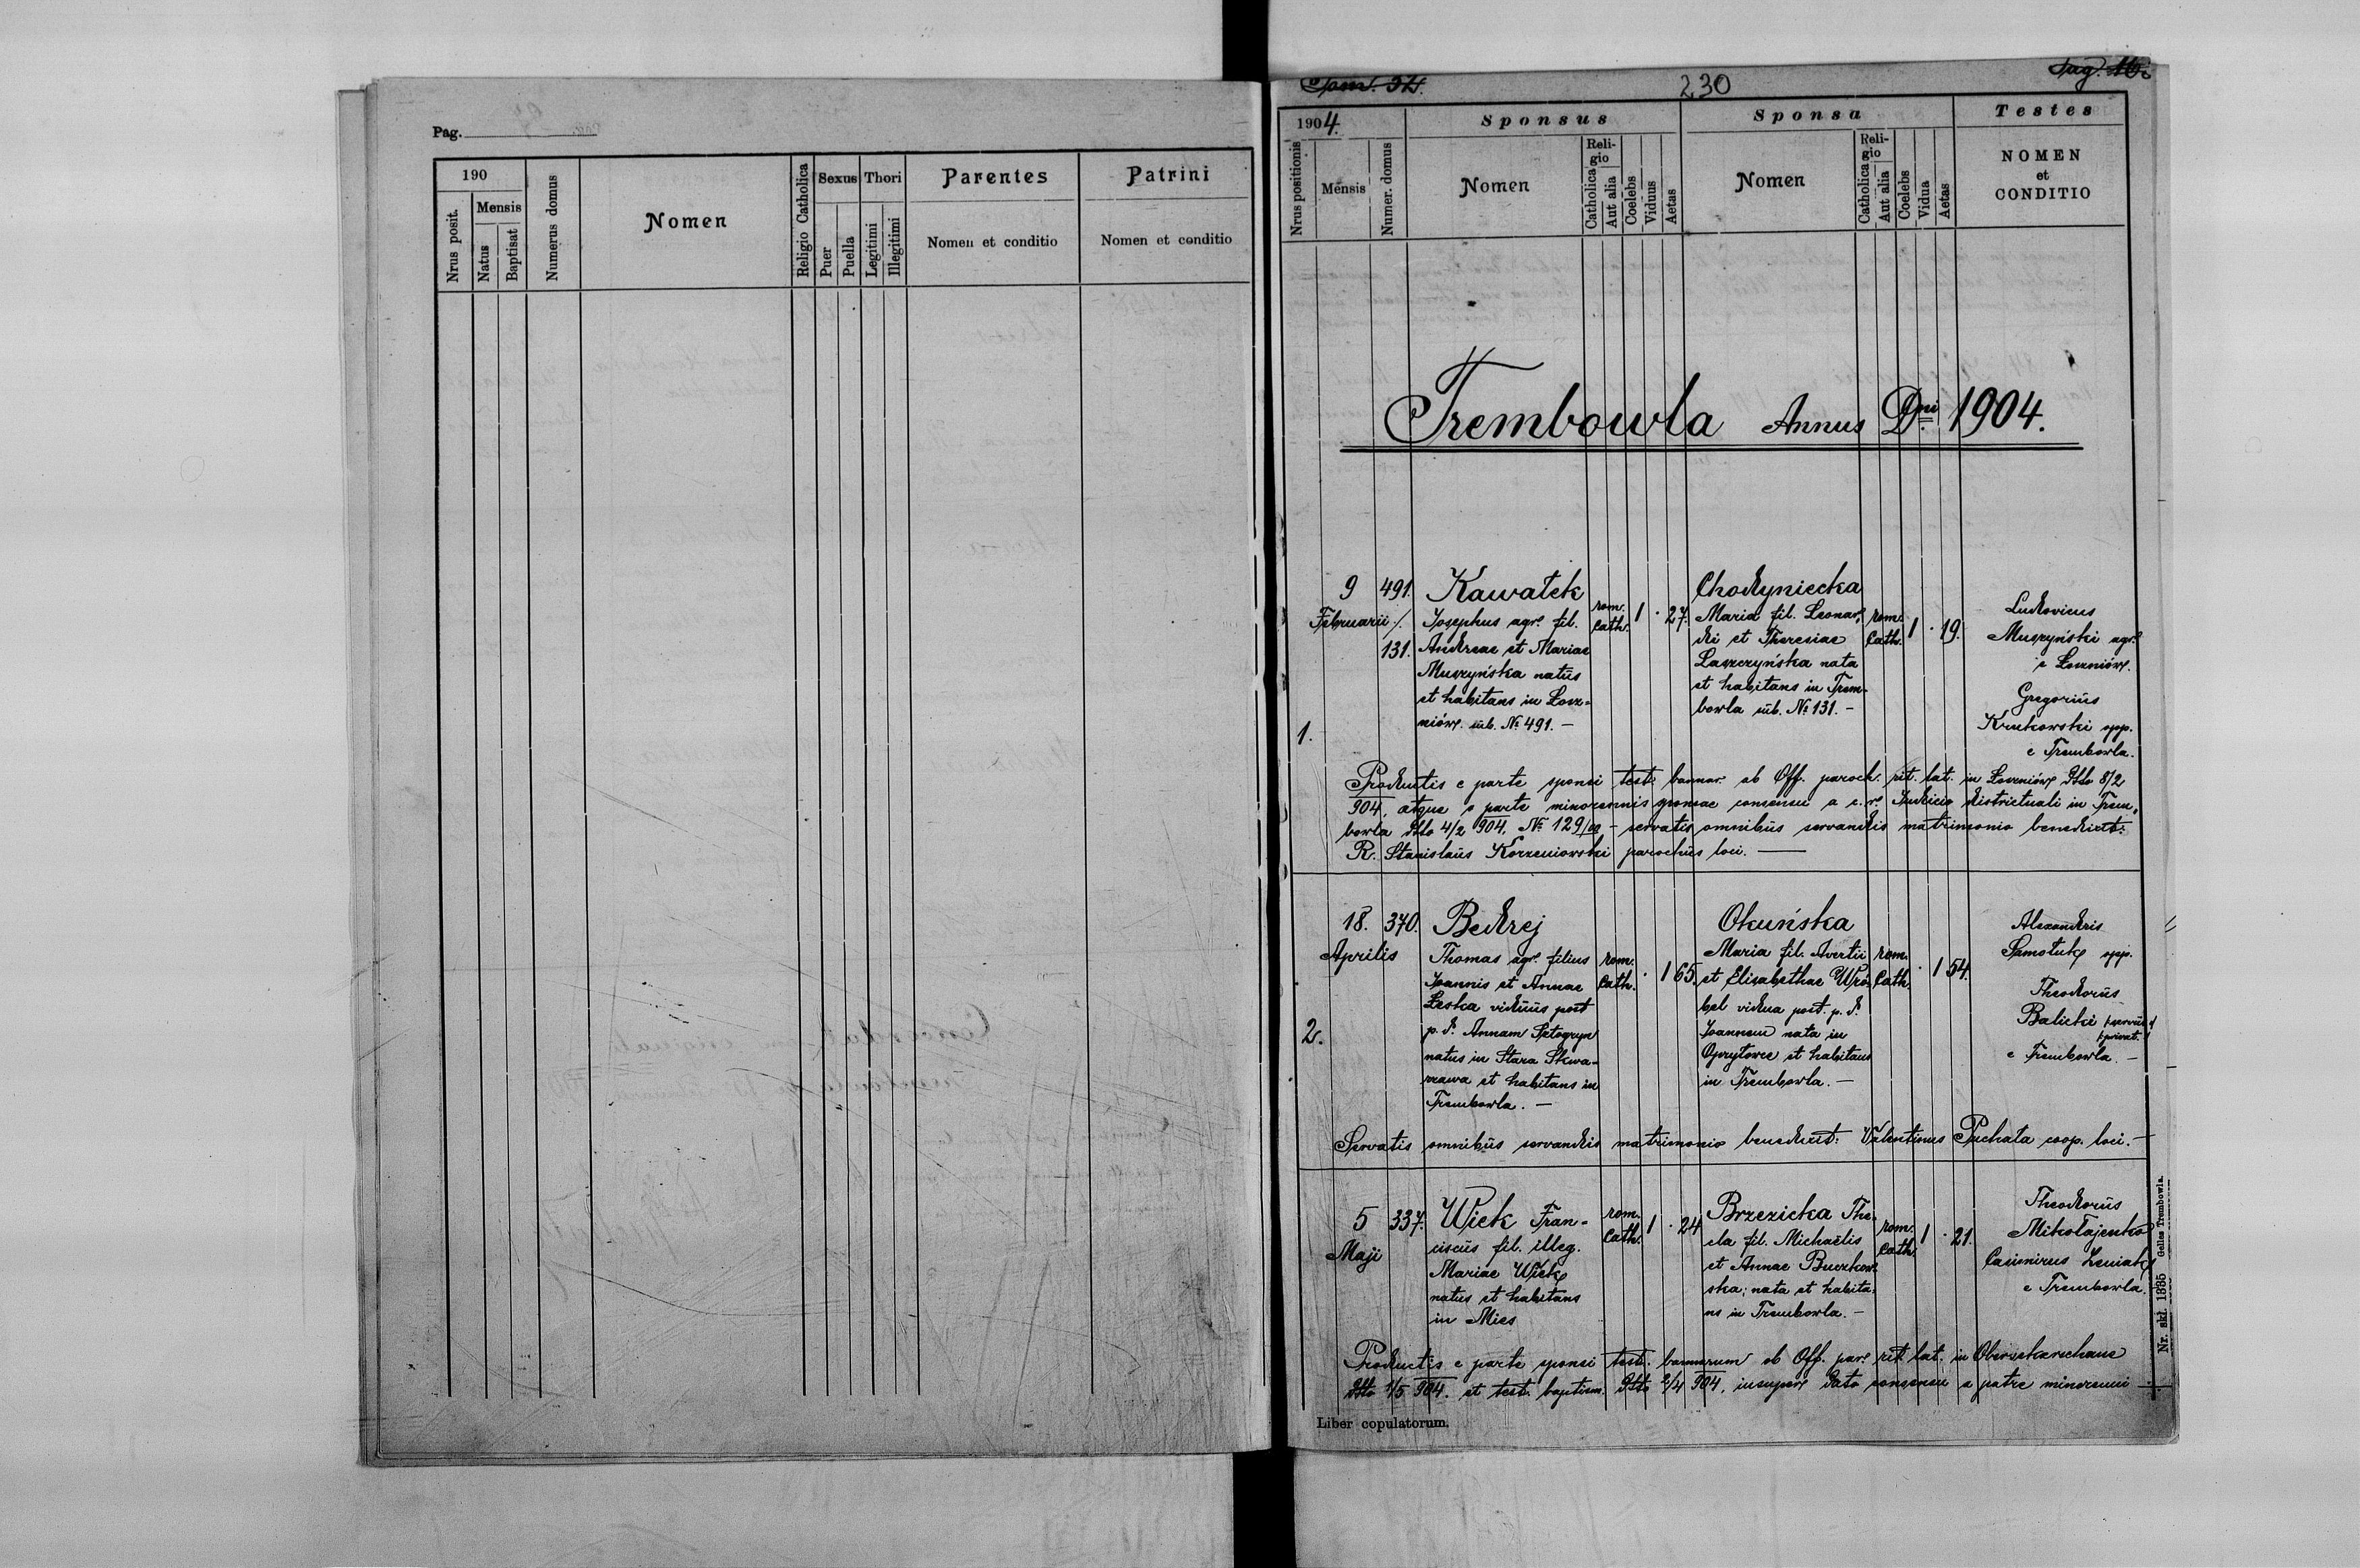 Pag.
190
Nrus posit.
Mensis
Natus
Baptisat
Numerus domus
Nomen
Religio Catholica
Sexus
Puer
Puella
Thori
Legitimi
Illegitimi
Parentes
Nomen et conditio
Patrini
Nomen et conditio
230
1904.
Nrus positionis
Mensis
Numer. domus
Sponsus
Nomen
Reli-
gio
Catholica
Aut alia
Coelebs
Viduus
Aetas
Sponsa
Nomen
Reli-
gio
Catholica
Aut alia
Coelebs
Vidua
Aetas
Testes
NOMEN
et
CONDITIO
Trembowla Annus Dni 1904.
1.
9
Februarii
491.
131.
Kawałek
Josephus agr. fil.
Andreae et Mariae
Muszyńska natus
et habitans in Łosz-
niów. sub. № 491. –
rom.
cath.
1 · 27.
Chodyniecka
Maria fil. Leonar-
di et Theresiae
Laszczyńska nata
et habitans in Trem-
bowla sub. № 131. –
rom.
Cath.
1 · 19.
Ludovicus
Muszyński agr.
e Łoszniów.
Gregorius
Krukowski opp.
e Trembowla.
Productis e parte sponsi test. bannor. ab Off. paroch. rit. lat. in Łoszniów ddto 8/2
904, atque e parte minorennis sponsae consensu a c. r. Judicio districtuali in Trem-
bowla ddto 4/2 904. № 129/ – servatis omnibus servandis matrimonio benedixit:
R. Stanislaus Korzeniowski parochus loci. –
2.
18.
Aprilis
370.
Bedrej
Thomas agr. filius
Joannis et Annae
Leska viduus post
p. d. Annam
natus in Stara Skwa-
rzawa et habitans in
Trembowla. –
rom.
Cath.
· 1 65.
Okuńska
Maria fil. Avertii
et Elisabethae Wró-
bel vidua post. p. d.
Joannem nata in
Opryłowce et habitans
in Trembowla. –
rom.
Cath.
· 1 54.
Alexandris
Samotuk opp.
Theodorus
Balicki servus
privat.
e Trembowla. –
Servatis omnibus servandis matrimonio benedixit: Valentinus Puchała coop. loci. –
5
Maji
337.
Wiek Fran-
ciscus fil. illeg.
Mariae Wiek
natus et habitans
in Mies
rom.
Cath.
1 · 24
Brzezicka The-
cla fil. Michaëlis
et Annae Buczkow-
ska; nata et habita-
ns in Trembowla. –
rom.
Cath.
1 · 21.
Theodorus
Mikołajenko
Casimirus Leniak
e Trembowla.
Productis e parte sponsi test. bannorum ab Off. par. rit. lat. in
ddto 1/5 904. et test. baptism. ddto 2/4 904, insuper dato consensu a patre minorenni
Liber copulatorum.
Nr. skł. 1335 Gelles Trembowla.